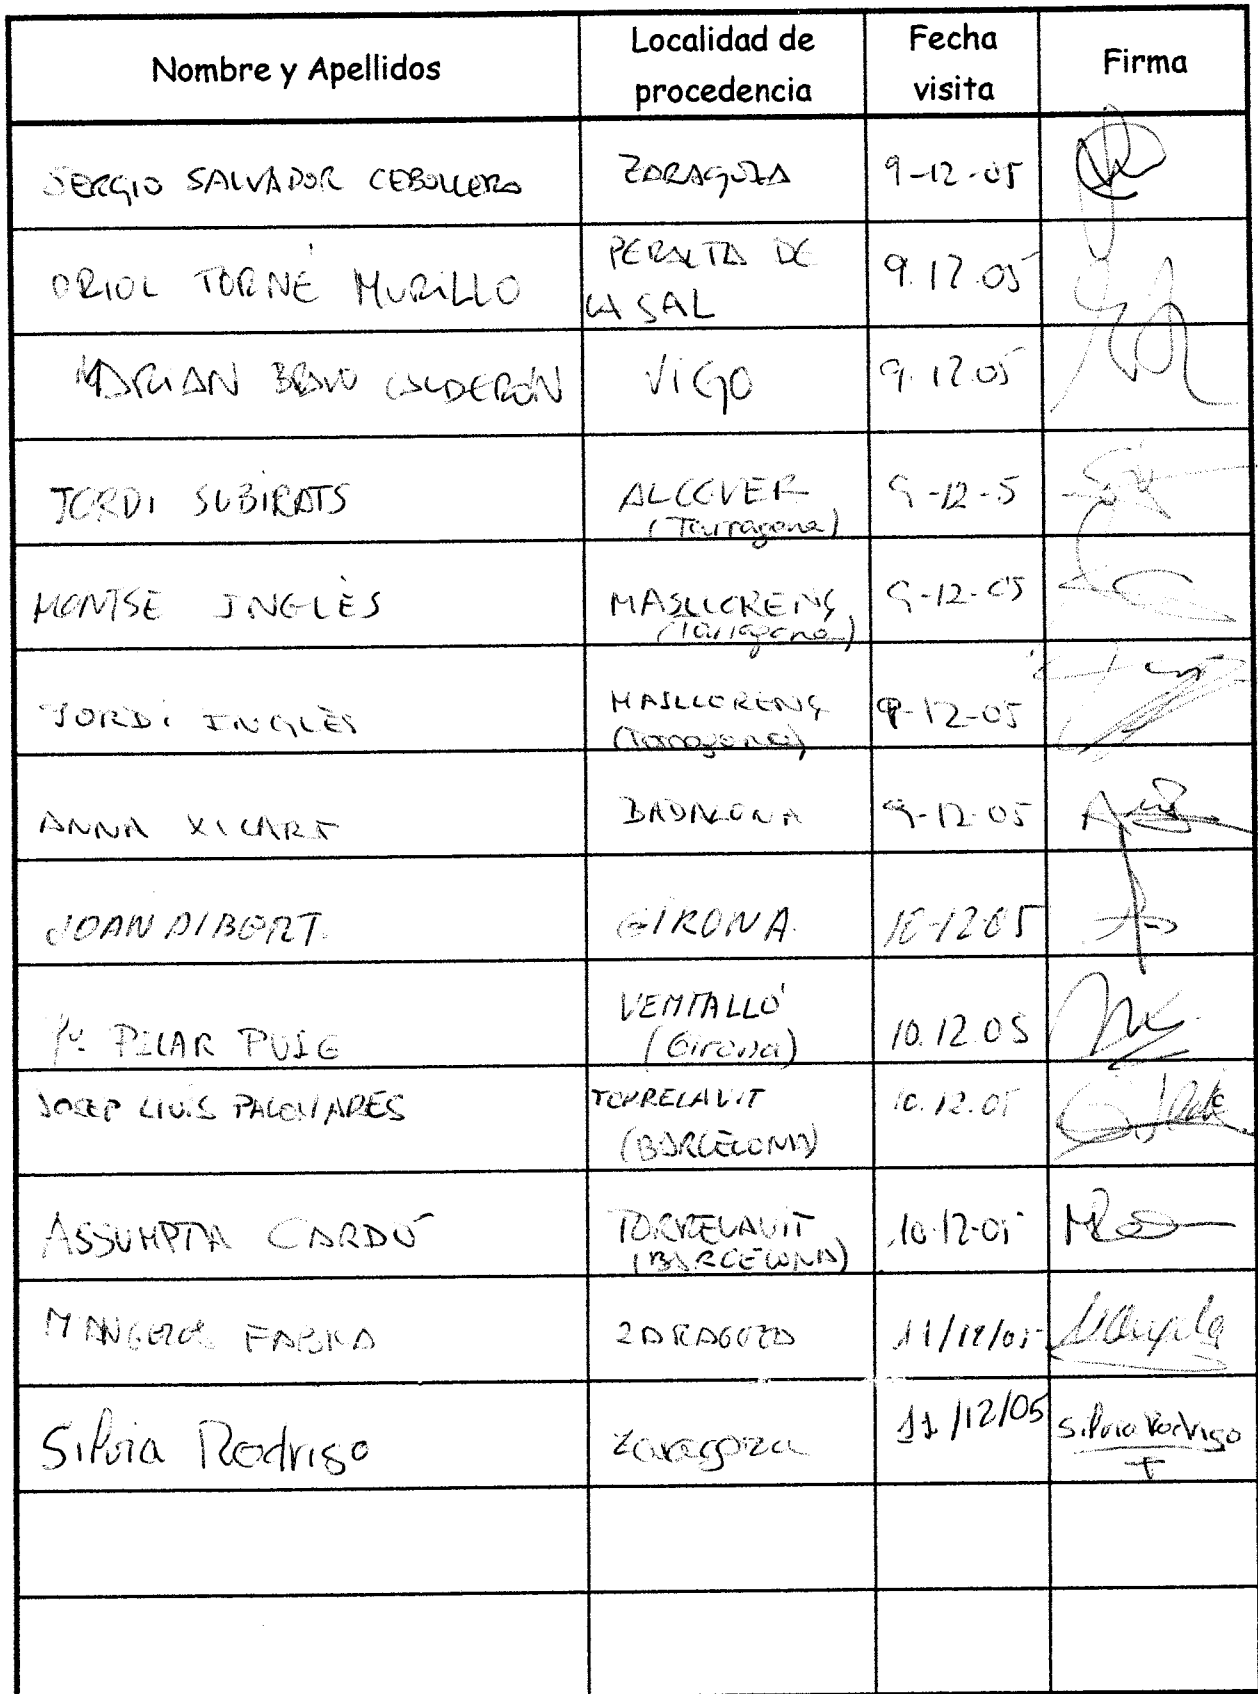 Nombre y Apellidos
Localidad de
procedencia
Fecha
visita
Firma
SERGIO SALVADOR CEBOLLERO
ZARAGOZA
9-12-05
ORIOL TORNÉ MURILLO
PERALTA DE
LA SAL
9.12.05
MARIAN BRAVO CALDERÓN
VIGO
9.12.05
JORDI SUBIRATS
ALCOVER
(Tarragona)
9-12-5
MONTSE INGLÈS
MASLLORENÇ
(Tarragona)
9-12-05
JORDI INGLÈS
MASLLORENÇ
(Tarragona)
9-12-05
ANNA XICART
BADALONA
9-12-05
JOAN AIBERT.
GIRONA.
10-12 05
Mª PILAR PUIG
VENTALLÓ
(Girona)
10.12.05
JOSEP LLUIS PALOMARES
TORRELAVIT
(BARCELONA)
10.12.05
ASSUMPTA CARDÚ
TORRELAVIT
(BARCELONA)
10-12-05
FABRA
ZARAGOZA
11/12/05
Silvia Rodrigo
Zaragoza
11/12/05
Silvia Rodrigo